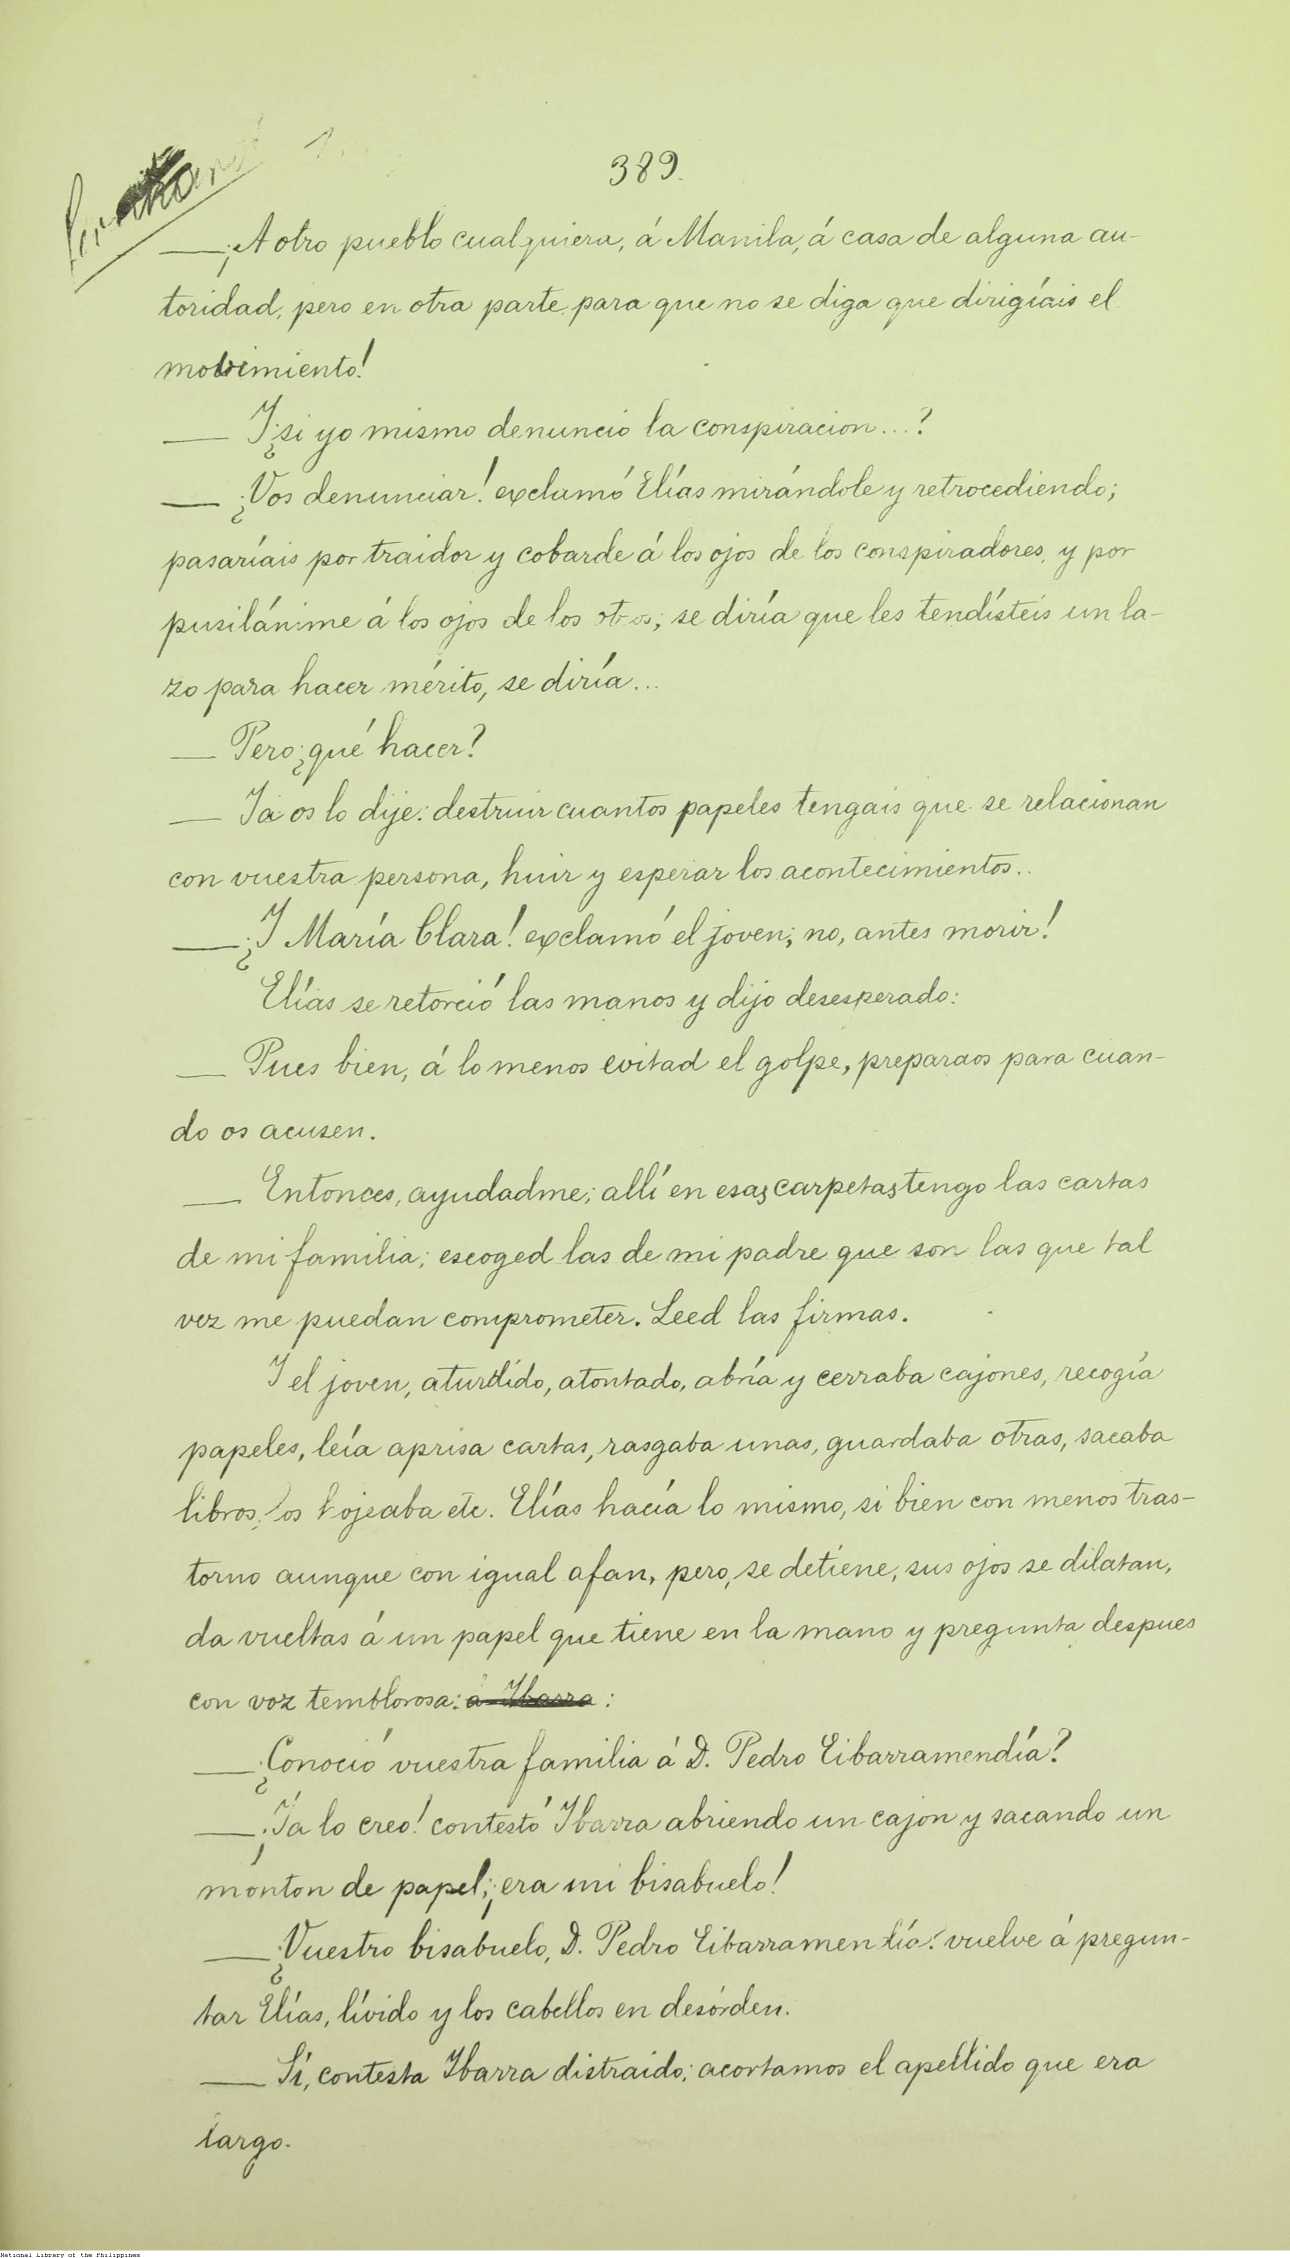 389.
— ¡A otro pueblo cualquiera, á Manila, á casa de alguna au-
toridad, pero en otra parte para que no se diga que dirigíais el
movimiento!
— Y ¿si yo mismo denuncio la conspiracion...?
— ¿Vos denunciar! exclamó Elías mirándole y retrocediendo;
pasaríais por traidor y cobarde á los ojos de los conspiradores, y por
pusilánime á los ojos de los otros; se diría que les tendísteis un la-
zo para hacer mérito, se diría...
— Pero ¿qué hacer?
— Ya os lo dije: destruir cuantos papeles tengais que se relacionan
con vuestra persona, huir y esperar los acontecimientos..
— ¿Y María Clara! exclamó el joven; no, antes morir!
Elías se retorció las manos y dijo desesperado:
— Pues bien, á lo menos evitad el golpe, preparaos para cuan-
do os acusen.
— Entonces, ayudadme; allí en esas carpetas tengo las cartas
de mi familia; escoged las de mi padre que son las que tal
vez me puedan comprometer. Leed las firmas.
Y el joven, aturdido, atontado, abría y cerraba cajones, recogía
papeles, leía aprisa cartas, rasgaba unas, guardaba otras, sacaba
libros, los hojeaba etc. Elías hacía lo mismo, si bien con menos tras-
torno aunque con igual afan, pero, se detiene, sus ojos se dilatan,
da vueltas á un papel que tiene en la mano y pregunta despues
con voz temblorosa: á Ibarra :
— ¿Conoció vuestra familia á D. Pedro Eibarramendía?
— ¡Ya lo creo! contestó Ibarra abriendo un cajon y sacando un
monton de papel; ¡era mi bisabuelo!
— ¿Vuestro bisabuelo, D. Pedro Eibarramendía? vuelve á pregun-
tar Elías, lívido y los cabellos en desórden.
— Sí, contesta Ibarra distraido; acortamos el apellido que era
largo.
National Library of the Philippines